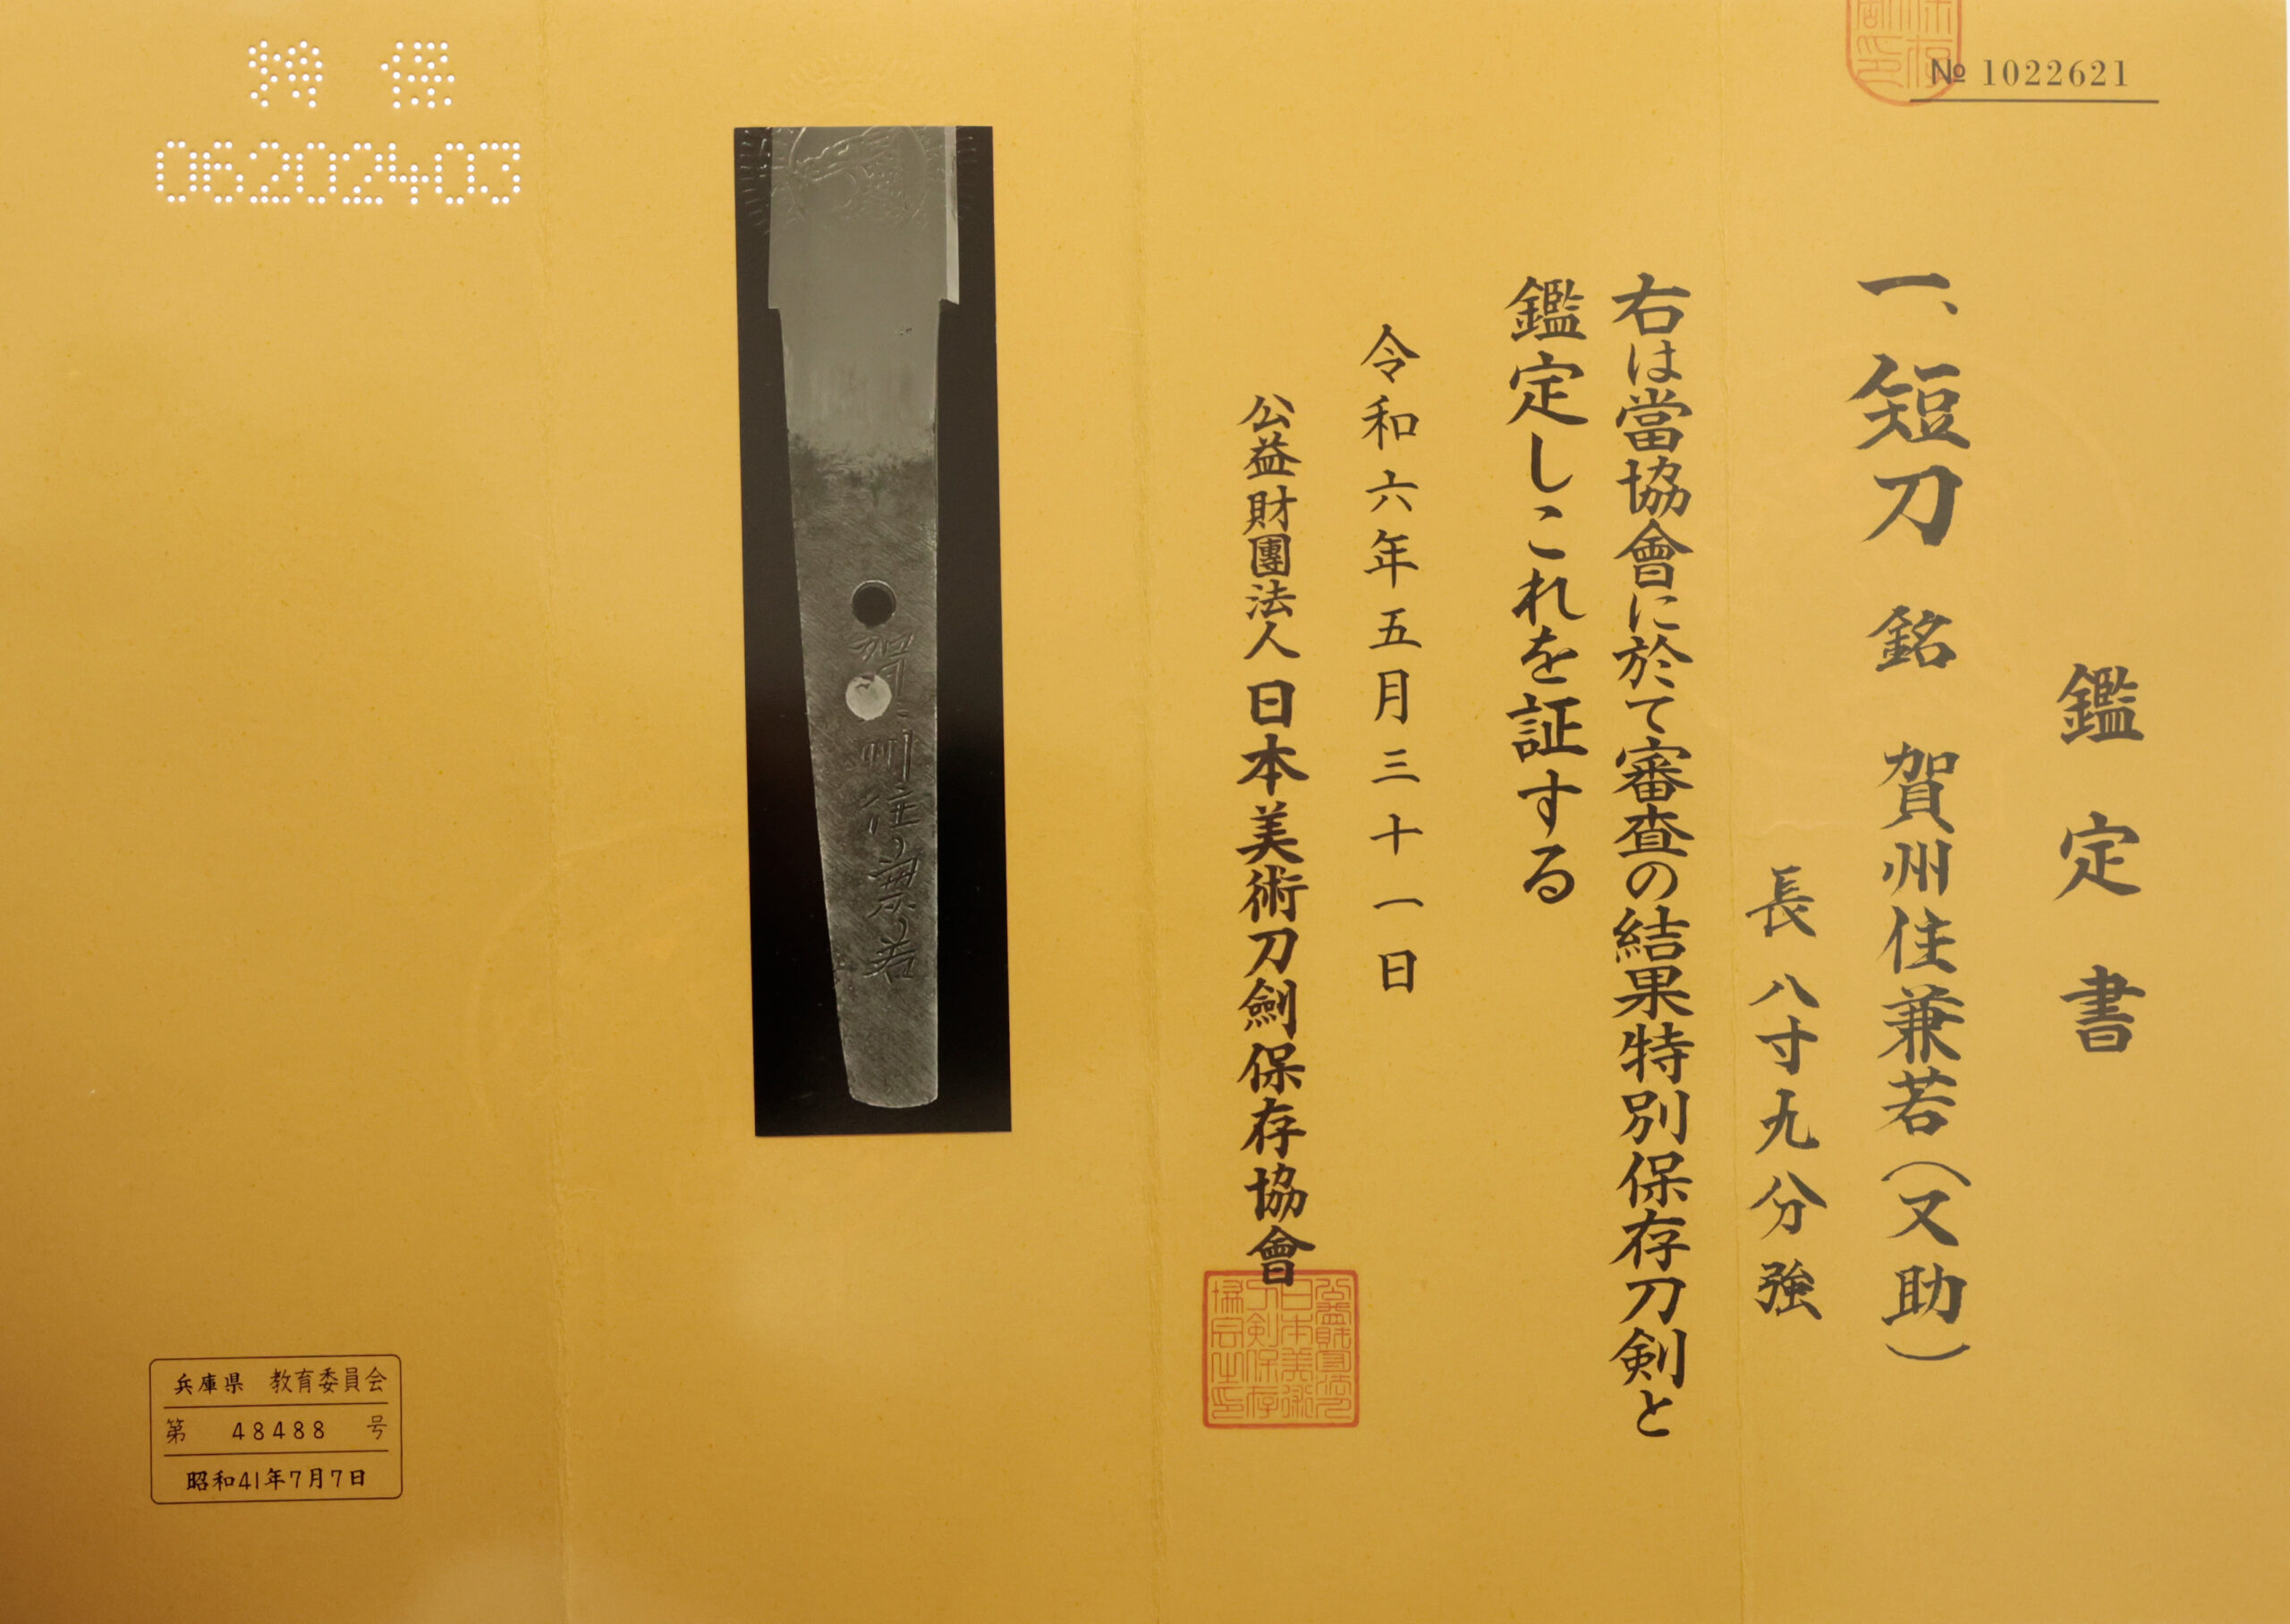 № 1022621
鑑定書
一、短刀 銘 賀州住兼若(又助)
長 八寸九分強
右は當協會に於て審査の結果特別保存刀剣と
鑑定しこれを証する
令和六年五月三十一日
公益財團法人 日本美術刀劍保存協會
賀州住兼若
特 保
06202403
兵庫県 教育委員会
第 48488 号
昭和41年7月7日